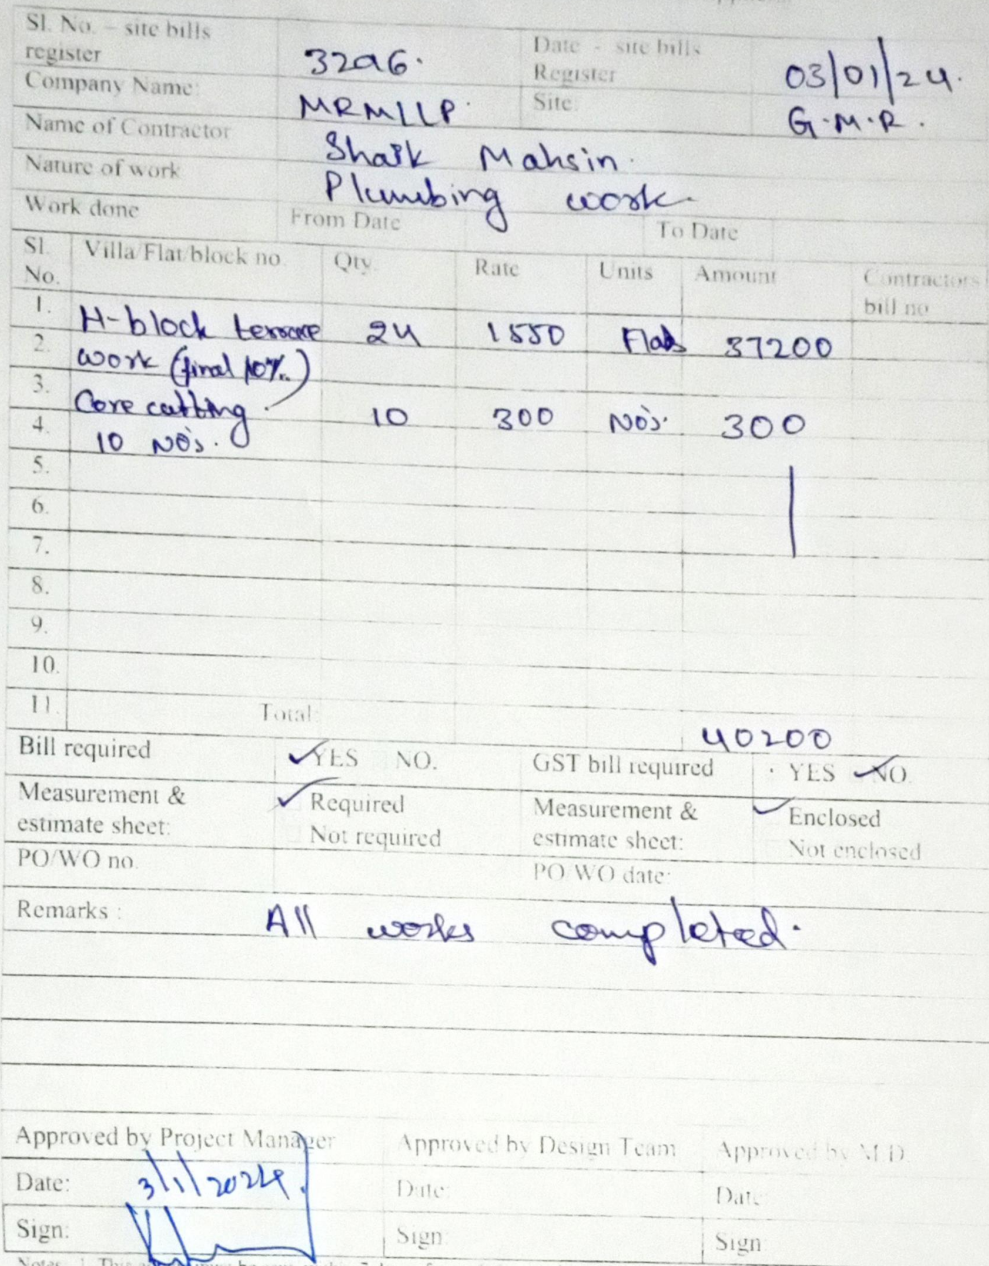 Sl. No. – site bills register 3296. Date - site bills Register 03/01/24.
Company Name: MRMLLP. Site: G.M.R.
Name of Contractor Shaik Mahsin.
Nature of work Plumbing work.
Work done From Date To Date
Sl. No. Villa/Flat/block no. Qty. Rate Units Amount Contractors bill no
1. H-block terrace 24 1550 Flats 37200
2. work (final 10%.)
3. Core cutting. 10 300 No's. 300
4. 10 No's.
5.
6.
7.
8.
9.
10.
11. Total: 40200
Bill required YES NO. GST bill required YES NO
Measurement & estimate sheet: Required Not required Measurement & estimate sheet: Enclosed Not enclosed
PO/WO no. PO/WO date:
Remarks : All works completed.
Approved by Project Manager Approved by Design Team Approved by M.D.
Date: 3/1/2024. Date: Date
Sign: Sign: Sign